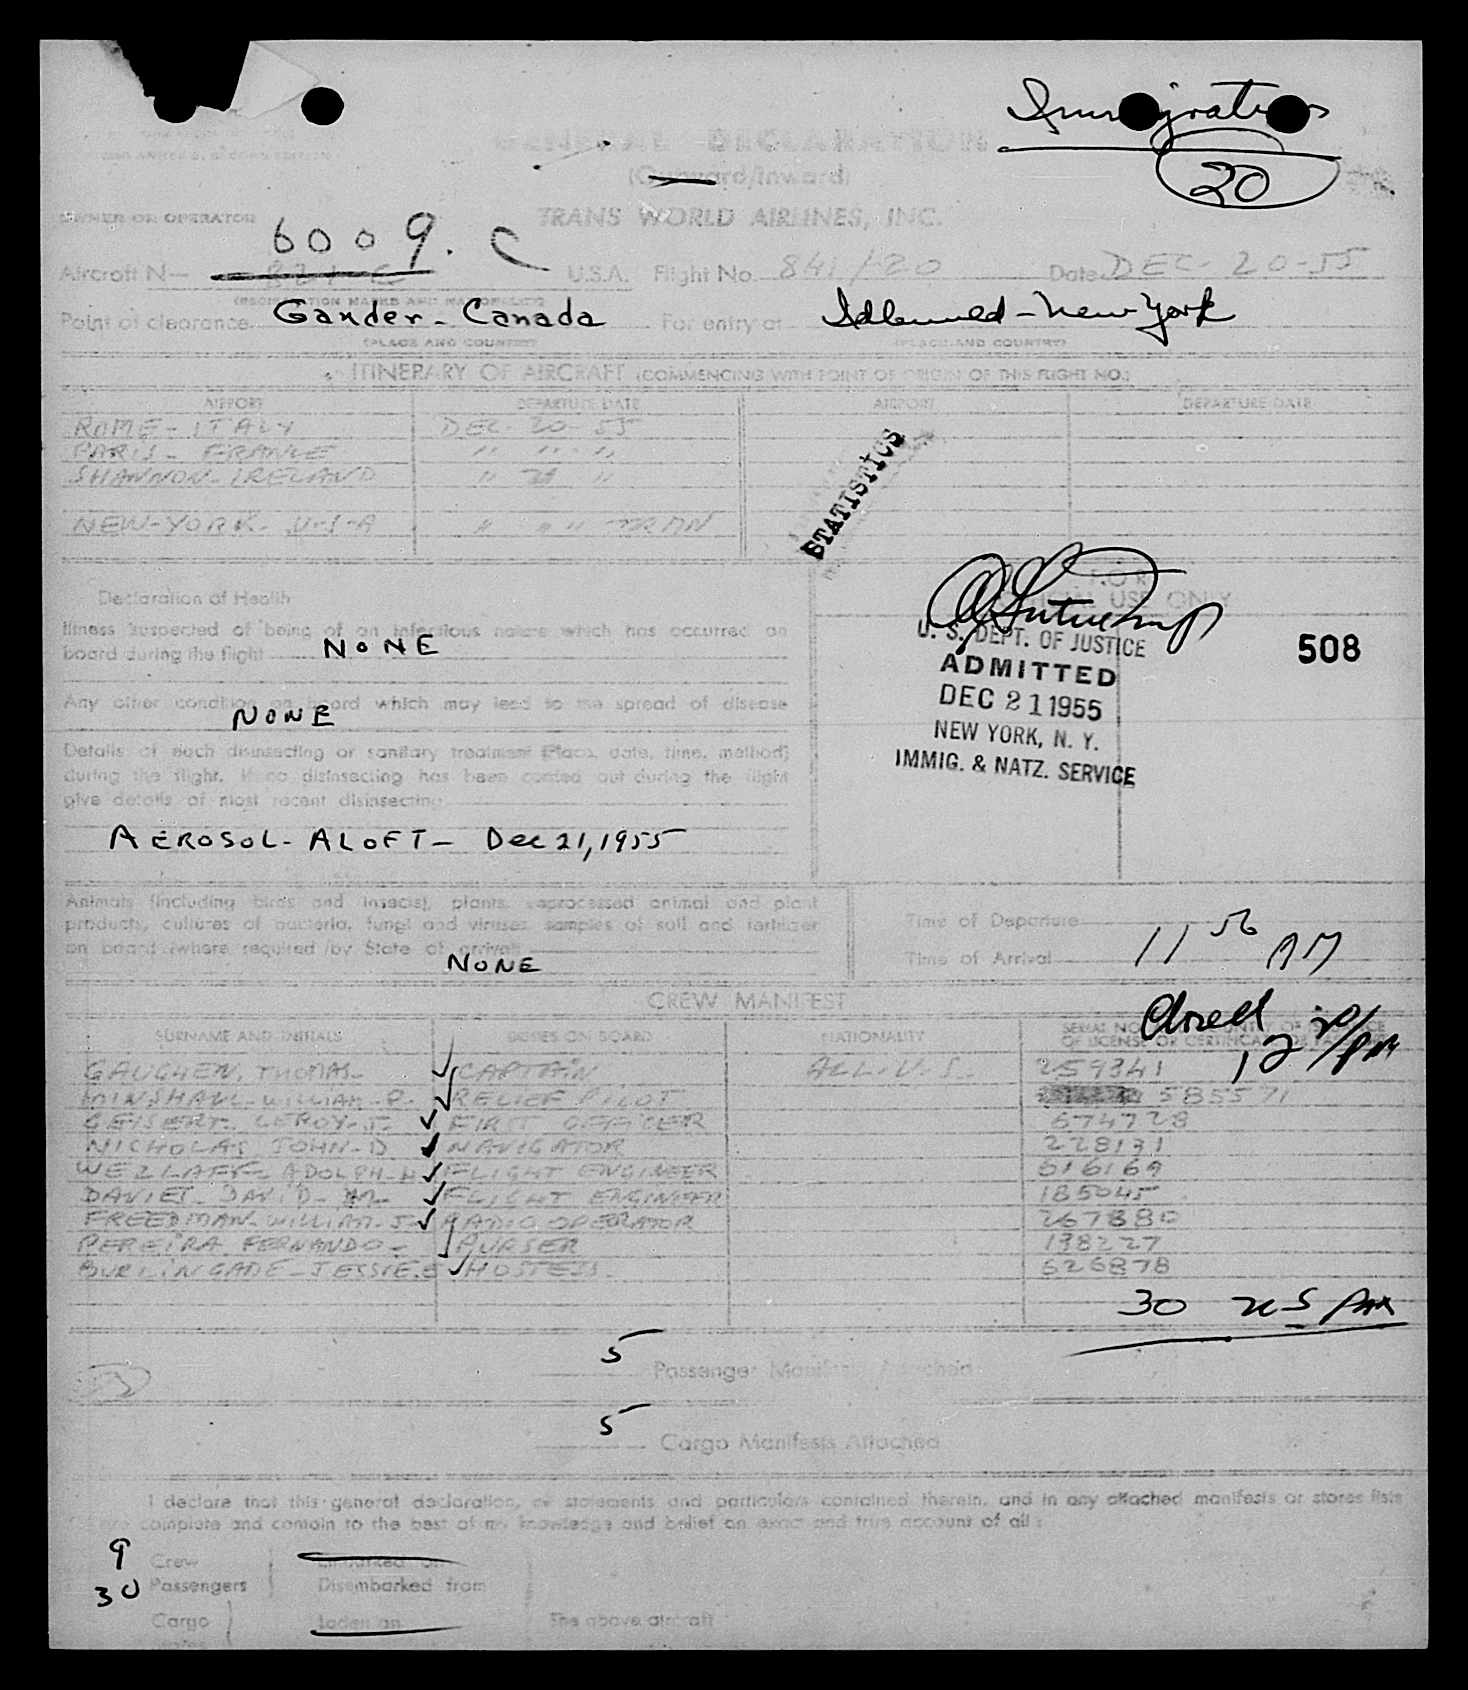 Immigration
20
GENERAL DECLARATION
(Outward/Inward)
OWNER OR OPERATOR TRANS WORLD AIRLINES, INC.
6009. C
Aircraft N— U.S.A. Flight No. 841/-20 Date DEC- 20-55
(REGISTRATION MARKS AND NATIONALITY)
Point of clearance Gander - Canada For entry at Idlewild - New York
(PLACE AND COUNTRY) (PLACE AND COUNTRY)
ITINERARY OF AIRCRAFT (COMMENCING WITH POINT OF ORIGIN OF THIS FLIGHT NO.)
AIRPORT DEPARTURE DATE AIRPORT DEPARTURE DATE
ROME - ITALY DEC- 20- 55
PARIS - FRANCE " " "
SHANNON- IRELAND " "
NEW-YORK- U-S-A " " "
STATISTICS
Declaration of Health
FOR
OFFICIAL USE ONLY
Illness suspected of being of an infectious nature which has occurred on
board during the flight NONE
U. S. DEPT. OF JUSTICE
ADMITTED
DEC 21 1955
NEW YORK, N. Y.
IMMIG. & NATZ. SERVICE
508
Any other condition on board which may lead to the spread of disease
NONE
Details of each disinsecting or sanitary treatment (Place, date, time, method)
during the flight. If no disinsecting has been carried out during the flight
give details of most recent disinsecting
AEROSOL- ALOFT- Dec 21, 1955
Animals (including birds and insects), plants, unprocessed animal and plant
products, cultures of bacteria, fungi and viruses, samples of soil and fertilizer
on board (where required by State of arrival)
NONE
Time of Departure
Time of Arrival 11 56 AM
CREW MANIFEST
Closed 12 PM
SURNAME AND INITIALS DUTIES ON BOARD NATIONALITY
OF LICENSE OR CERTIFICATE
GAUGHEN, THOMAS- CAPTAIN ALL-U-S- 259341
MINSHALL-WILLIAM-P- RELIEF PILOT 585571
GEISERT- LEROY-J- FIRST OFFICER 674728
NICHOLAS JOHN-D NAVIGATOR 228131
WEZLAFF- ADOLPH-H FLIGHT ENGINEER 616169
DAVIET- DAVID-M- FLIGHT ENGINEER 185045
FREEDMAN-WILLIAM-J- RADIO OPERATOR 267880
PEREIRA FERNANDO- PURSER 198227
BURLINGAME-JESSIE.E HOSTESS. 626878
30 US PAX
5 Passenger Manifests Attached
5 Cargo Manifests Attached
I declare that this general declaration, or statements and particulars contained therein, and in any attached manifests or stores lists
are complete and contain to the best of my knowledge and belief an exact and true account of all:
9 Crew Embarked on
30 Passengers Disembarked from
Cargo Laden on The above aircraft